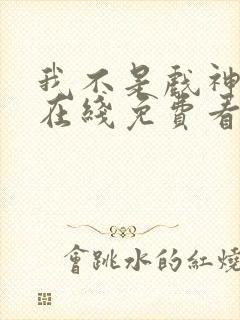 我不是戲神
在綫免費看
會跳水的紅燒